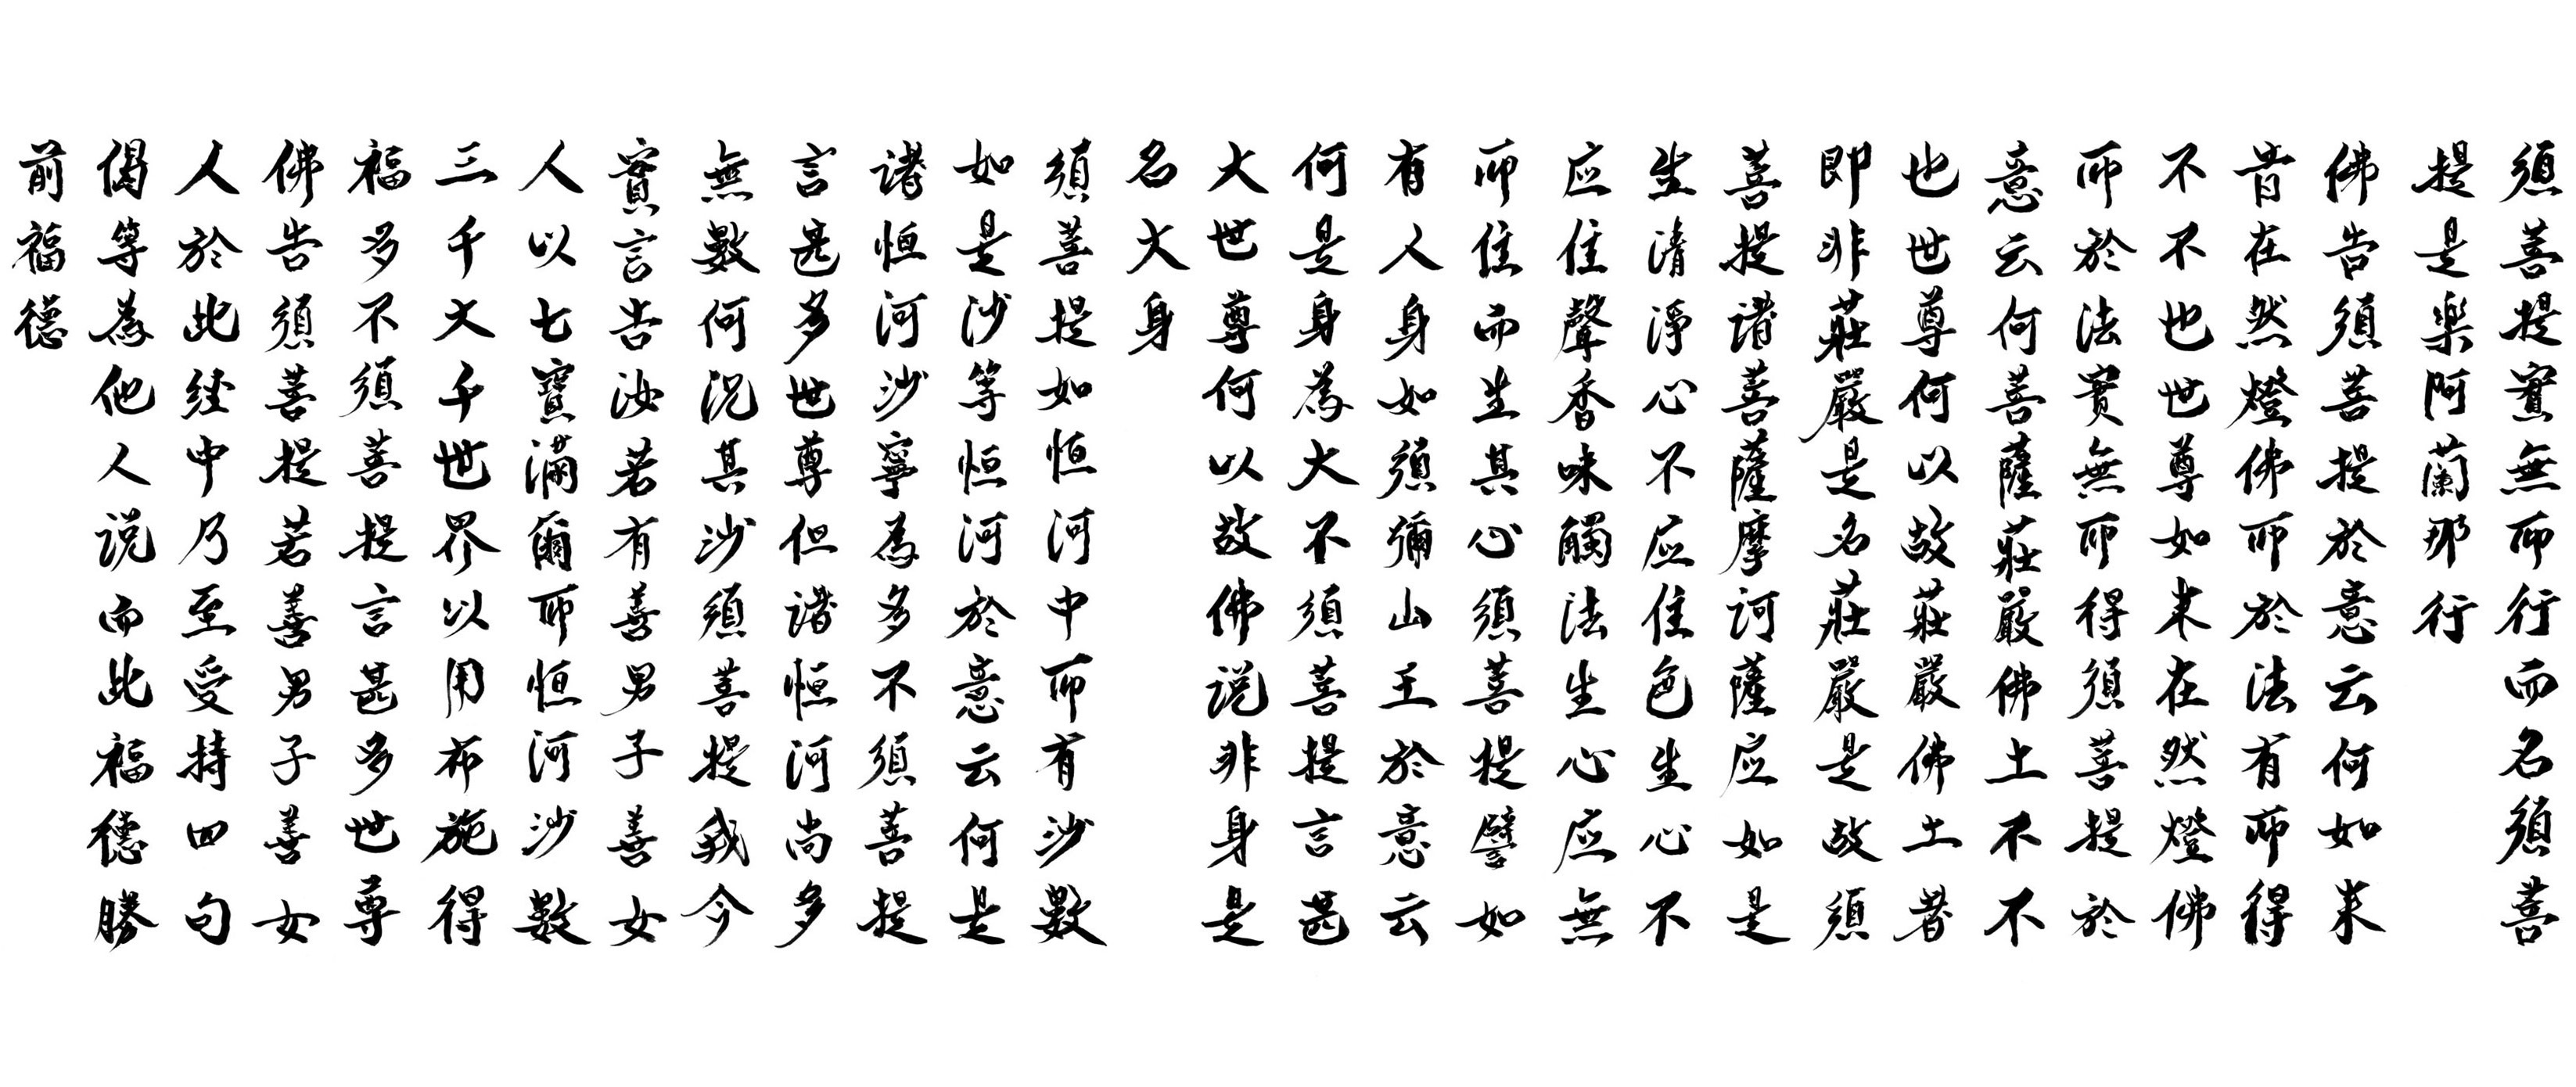 須菩提實無所行而名須菩
提是樂阿蘭那行
佛告須菩提於意云何如来
昔在然燈佛所於法有所得
不不也世尊如来在然燈佛
所於法實無所得須菩提於
意云何菩薩莊嚴佛土不不
也世尊何以故莊嚴佛土者
即非莊嚴是名莊嚴是故須
菩提諸菩薩摩訶薩应如是
生清淨心不应住色生心不
应住聲香味觸法生心应無
所住而生其心須菩提譬如
有人身如須彌山王於意云
何是身為大不須菩提言甚
大世尊何以故佛说非身是
名大身
須菩提如恒河中所有沙數
如是沙等恒河於意云何是
諸恒河沙寧為多不須菩提
言甚多世尊但諸恒河尚多
無數何况其沙須菩提我今
實言告汝若有善男子善女
人以七寶滿爾所恒河沙數
三千大千世界以用布施得
福多不須菩提言甚多世尊
佛告須菩提若善男子善女
人於此经中乃至受持四句
偈等為他人说而此福德勝
前福德